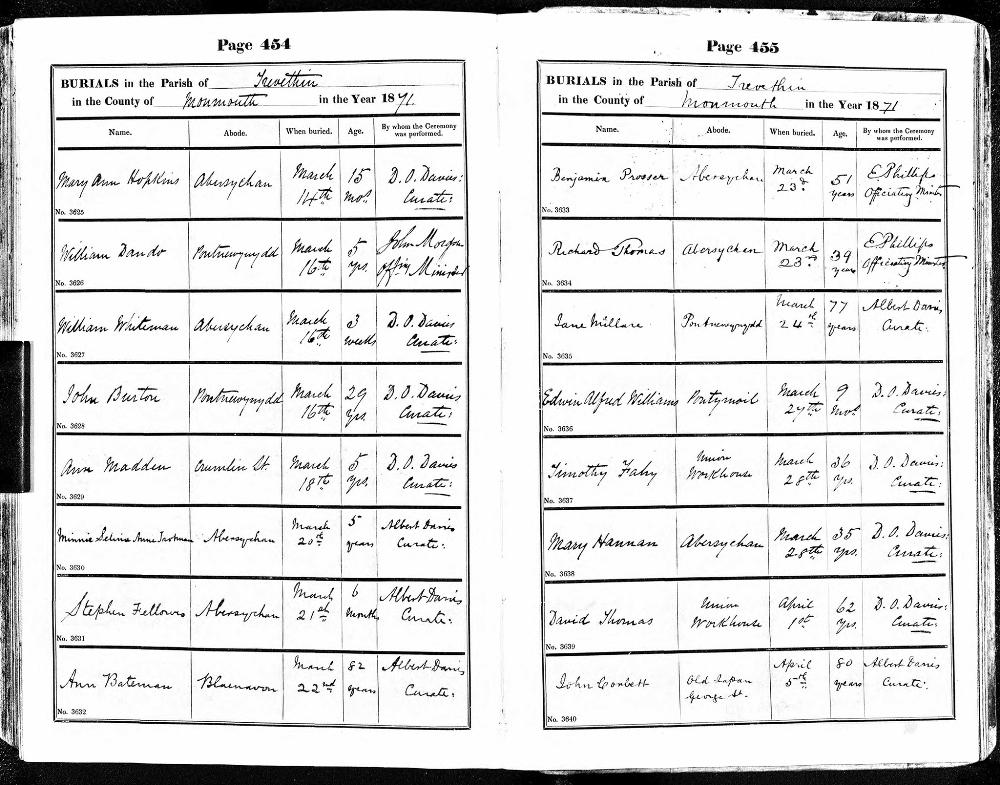 Page 454
BURIALS in the Parish of Trevethin
in the County of Monmouth in the Year 1871.
Name. Abode. When buried. Age. By whom the Ceremony was performed.
Mary Ann Hopkins Abersychan March 14th 15 mos. D. O. Davies: Curate:
No. 3625
William Dando Pontnewynydd March 16th 5 yrs. John Morgan offig Minister
No. 3626
William Whiteman Abersychan March 16th 3 weeks D. O. Davies Curate:
No. 3627
John Burton Pontnewynydd March 16th 29 yrs. D. O. Davies Curate:
No. 3628
Ann Madden Crumlin St. March 18th 5 yrs. D. O. Davies Curate:
No. 3629
Minnie Selina Anne March 20th 5 years Albert Davies Curate:
Abersychan
No. 3630
Stephen Fellows Abersychan March 21st 6 months Albert Davies Curate:
No. 3631
Ann Bateman Blaenavon March 22nd 82 years Albert Davies Curate:
No. 3632
Page 455
BURIALS in the Parish of Trevethin
in the County of Monmouth in the Year 1871
Name. Abode. When buried. Age. By whom the Ceremony was performed.
Benjamin Prosser Abersychan March 23d 51 years E Phillips Officiating Minister
No. 3633
Richard Thomas Abersychan March 23rd 39 years E Phillips Officiating Minister
No. 3634
Jane Pontnewynydd March 24th 77 years Albert Davies Curate:
No. 3635
Edwin Alfred Williams Pontymoil March 27th 9 mos D. O. Davies: Curate:
No. 3636
Timothy Fahy Union Workhouse March 28th 36 yrs. D. O. Davies: Curate:
No. 3637
Mary Hannan Abersychan March 28th 35 yrs. D. O. Davies: Curate:
No. 3638
David Thomas Union Workhouse April 1st 62 yrs. D. O. Davies: Curate:
No. 3639
John Corbett Old Japan George St. April 5th 80 years Albert Davies Curate:
No. 3640